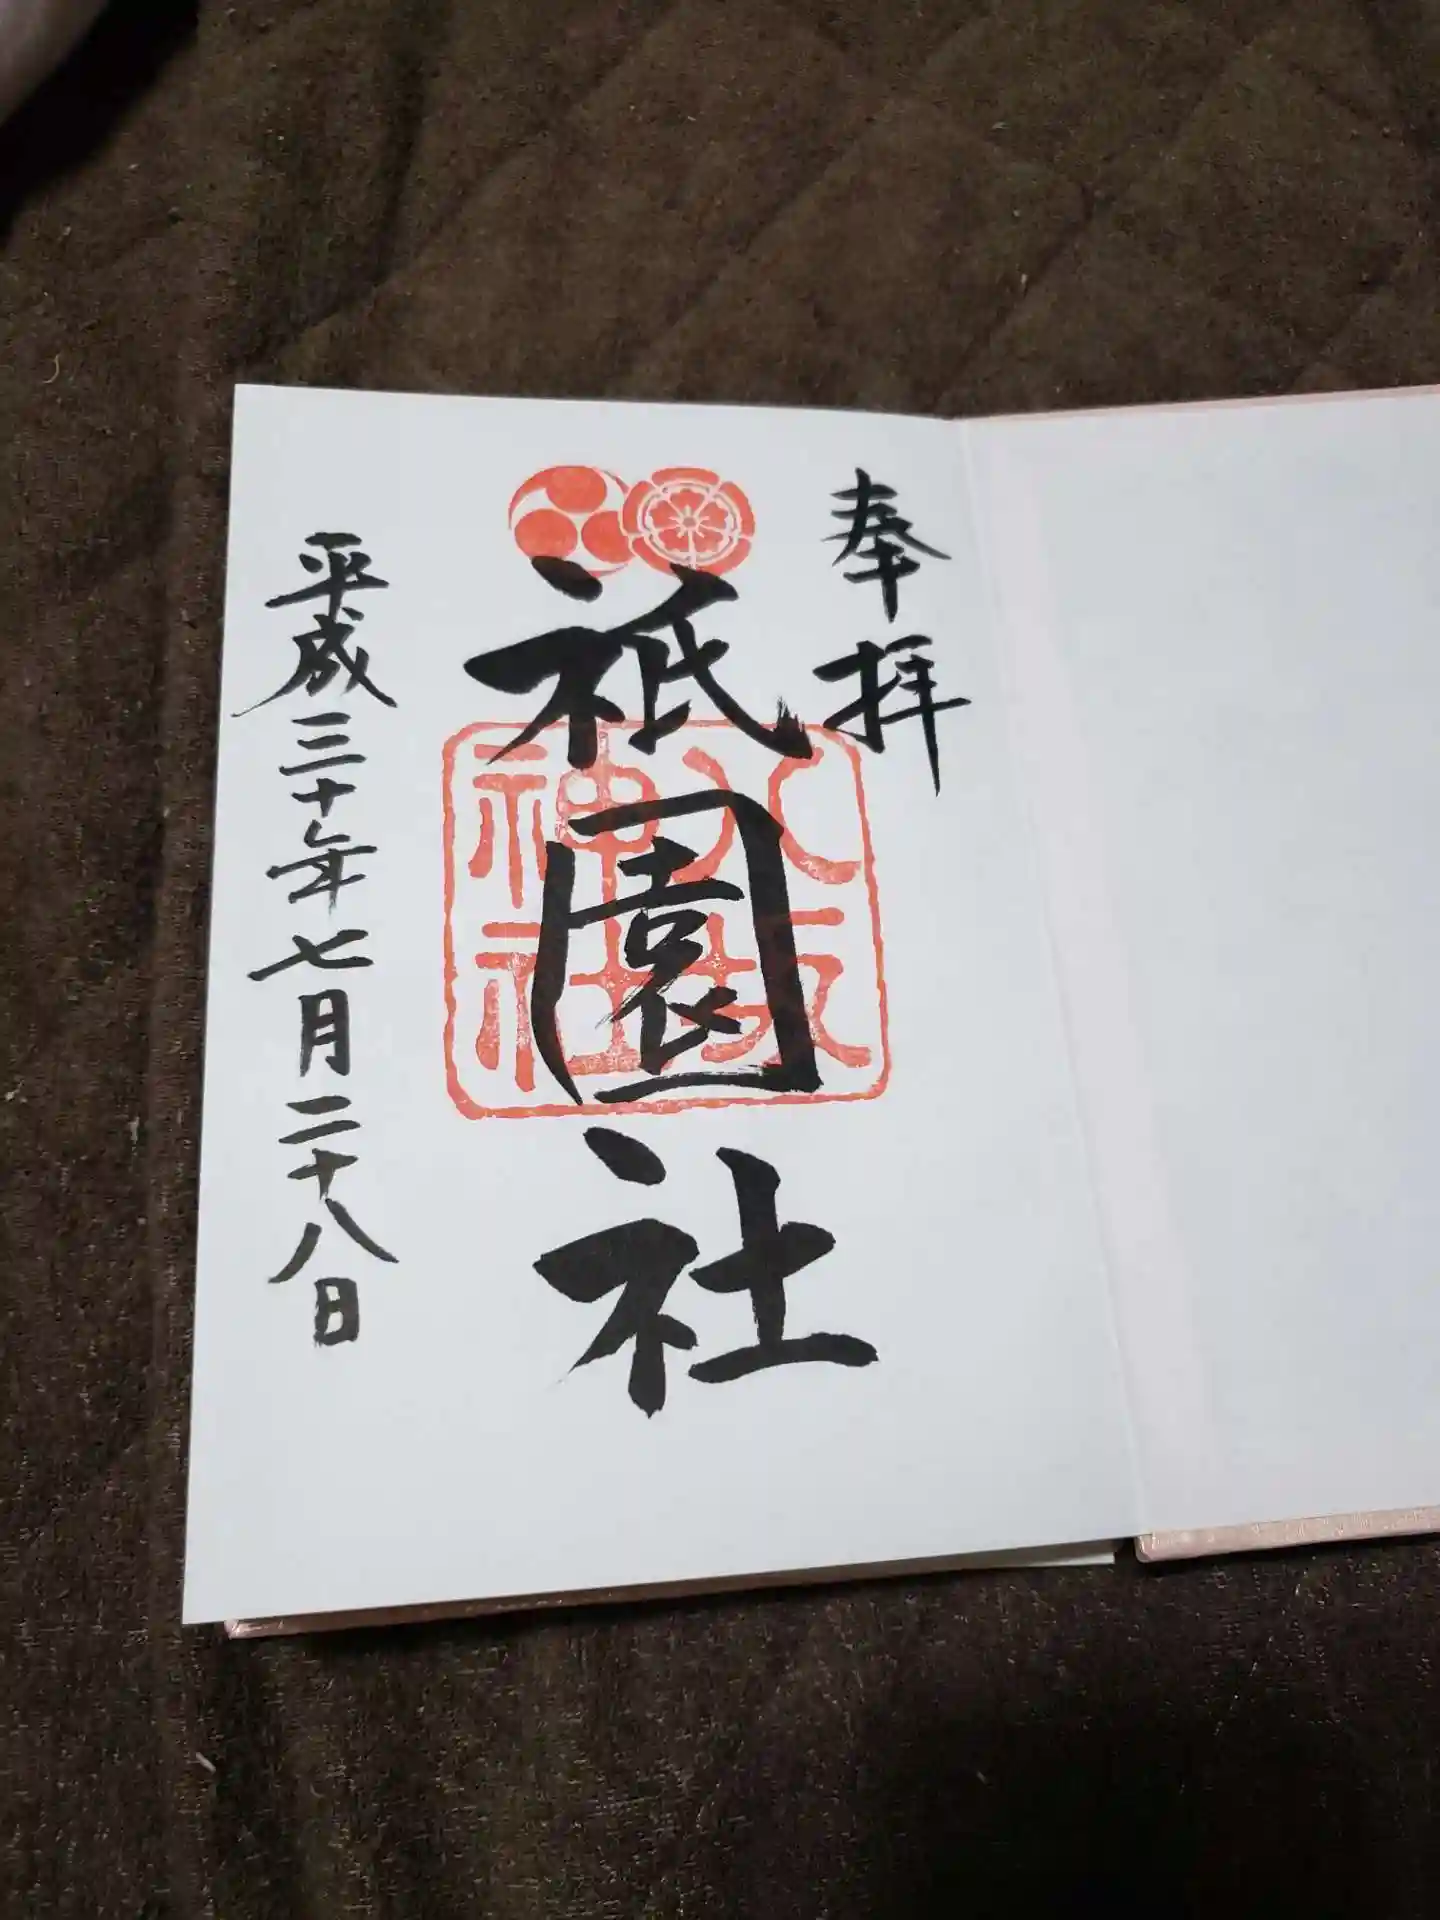 奉拝
祇園社
八坂
神社
平成三十年七月二十八日